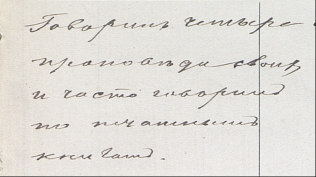 Говоримъ четыре
проповѣди своихъ
и часто говоримъ
по печатнымъ
книгамъ.